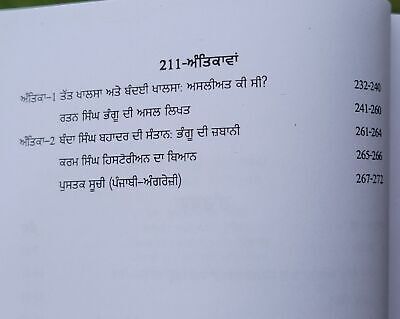 211-ਅੰਤਿਕਾਵਾਂ
ਅੰਤਿਕਾ-1 ਤੱਤ ਖਾਲਸਾ ਅਤੇ ਬੰਦਈ ਖਾਲਸਾ: ਅਸਲੀਅਤ ਕੀ ਸੀ? 232-240
ਰਤਨ ਸਿੰਘ ਭੰਗੂ ਦੀ ਅਸਲ ਲਿਖਤ 241-260
ਅੰਤਿਕਾ-2 ਬੰਦਾ ਸਿੰਘ ਬਹਾਦਰ ਦੀ ਸੰਤਾਨ: ਭੰਗੂ ਦੀ ਜ਼ਬਾਨੀ 261-264
ਕਰਮ ਸਿੰਘ ਹਿਸਟੋਰੀਅਨ ਦਾ ਬਿਆਨ 265-266
ਪੁਸਤਕ ਸੂਚੀ (ਪੰਜਾਬੀ-ਅੰਗਰੇਜ਼ੀ) 267-272